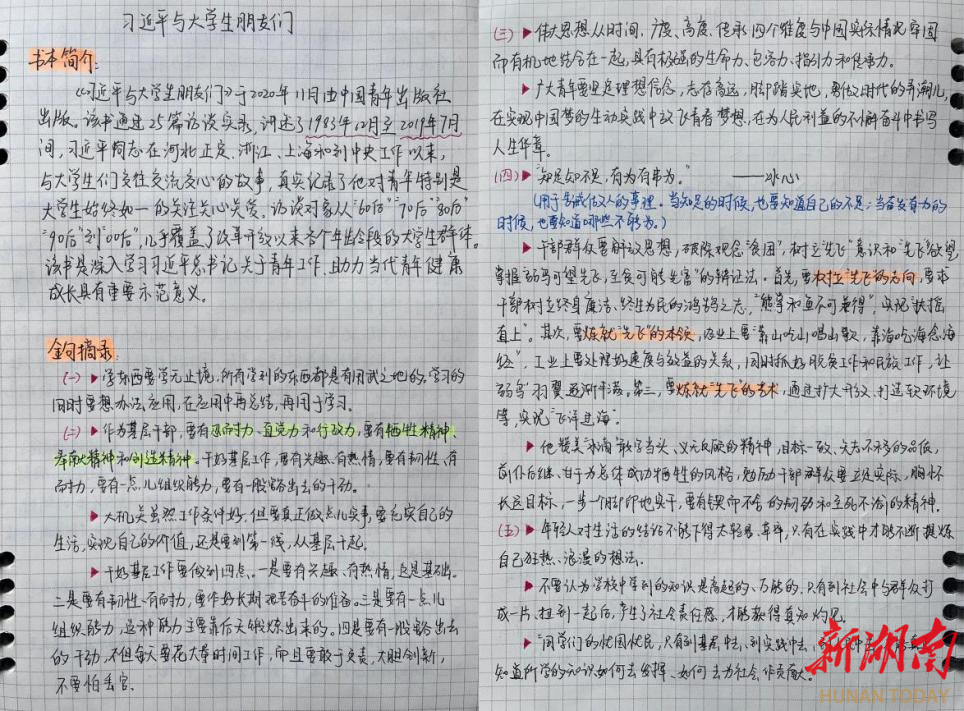 习近平与大学生朋友们
书本简介:
《习近平与大学生朋友们》于2020年11月由中国青年出版社
出版。该书通过25篇访谈实录,讲述了1983年12月至2019年7月
间,习近平同志在河北正定、浙江、上海和到中央工作以来,
与大学生们交往交流交心的故事,真实记录了他对青年特别是
大学生始终如一的关注关心关爱。访谈对象从"60后""70后""80后"
"90后"到"00后",几乎覆盖了改革开放以来各个年龄段的大学生群体。
该书是深入学习习近平总书记关于青年工作、助力当代青年健康
成长具有重要示范意义。
金句摘录:
(一) ▶学东西要学无止境,所有学到的东西都是有用武之地的。学习的
同时要想办法应用,在应用中再总结,再用于学习。
(二) ▶作为基层干部,要有忍耐力、直觉力和行政力,要有牺牲精神、
奉献精神和创造精神。干好基层工作,要有兴趣、有热情,要有韧性、有
耐力,要有一点儿组织能力,要有一股豁出去的干劲。
▶大机关虽然工作条件好,但要真正做点儿实事,要充实自己的
生活,实现自己的价值,还是要到第一线,从基层干起。
▶干好基层工作要做到四点。一是要有兴趣、有热情,这是基础。
二是要有韧性、有耐力,要作好长期艰苦奋斗的准备。三是要有一点儿
组织能力,这种能力主要靠后天锻炼出来的。四是要有一股豁出去
的干劲,不但每天要花大量时间工作,而且要敢于负责,大胆创新,
不要怕丢官。
(三) ▶伟大思想从时间、广度、高度、传承四个维度与中国实际情况牢固
而有机地结合在一起,具有极强的生命力、包容力、指引力和传承力。
▶广大青年要坚定理想信念,志存高远,脚踏实地,勇做时代的弄潮儿,
在实现中国梦的生动实践中放飞青春梦想,在为人民利益的不懈奋斗中书写
人生华章。
(四) ▶"知足知不足,有为有弗为。" ——冰心
(用于告诫做人的事理。当知足的时候,也要知道自己的不足;当奋发有为的
时候,也要知道哪些不能为。)
▶干部群众要解放思想,破除观念"贫困",树立"先飞"意识和"先飞"欲望
掌握"弱鸟可望先飞,至贫可能先富"的辩证法。首先,要树立"先飞"的志向,要求
干部树立终身廉洁、终生为民的鸿鹄之志,"熊掌和鱼不可兼得",实现"扶摇
直上"。其次,要炼就"先飞"的本领,农业上要"靠山吃山唱山歌,靠海吃海念海
经",工业上要处理好速度与效益的关系,同时抓好脱贫工作和民族工作,让
弱鸟羽翼逐渐丰满。第三,要炼就"先飞"的艺术,通过扩大开放、打造软环境
等,实现"飞洋过海"。
▶他赞美水滴敢字当头、义无反顾的精神,目标一致、矢志不移的品低,
前仆后继、甘于为总体成功牺牲的风格,勉励干部群众要立足实际,胸怀
长远目标,一步一个脚印地实干,要有锲而不舍的韧劲和立马不治的精神。
(五) ▶年轻人对生活的结论不能下得太轻易、草率,只有在实践中才能不断提炼
自己狂热、浪漫的想法。
▶不要认为学校中学到的知识是高超的、万能的,只有到社会中与群众打
成一片,扭到一起后,产生了社会责任感,才能获得真知灼见。
▶"同学们的忧国忧民,只有到基层中去,到实践中去,
知道所学的知识如何去发挥、如何去为社会作贡献。"
新湖南
HUNAN TODAY